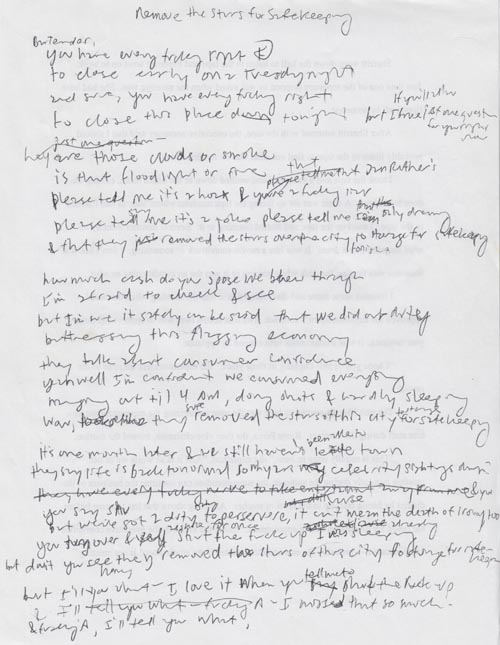 Remove the Stars for Safekeeping
Bartender,
you have every fucking right
to close early on a Tuesday night
and sure, you have every fucking right
to close this place down tonight
If you'll allow
but I have just one question
for you right now
just one question
hey are those clouds or smoke
is that floodlight or fire
please tell me that Dan Rather's
please tell me it's a hoax & you're a fucking liar
please tell me it's a joke please tell me I'm only dreaming
& that they just removed the stars over the city to storage for safekeeping
tonight.
how much cash do you s'pose we blew through
I'm afraid to check & see
but I'm sure it safely can be said that we did our duty
buttressing this flagging economy
they talk about consumer confidence
yeah well I'm confident we consumed everything
hanging out til 4 AM, doing shots & hardly sleeping
wow, they sure removed the stars of this city to storage for safekeeping
it's one month later & we still haven't left town
they say life is back to normal so why are celebrity sightings down
they have every fucking nerve to take
you say
but we've got a duty to persevere, it can't mean the death of irony
you over & shut the fuck up I was sleeping
but don't you see they removed the stars of this city to storage for safekeeping
but I tell you what - I love it when you tell me to shut the fuck up
& I'll tell you what - fucking A - I missed that so much.
& fucking A, I'll tell you what,